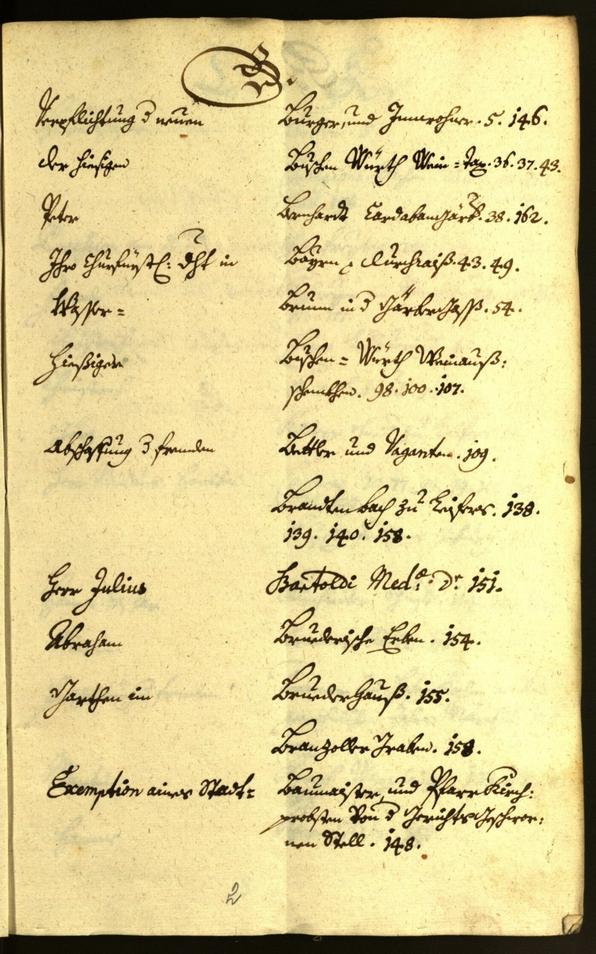 B.
Verpflichtung d neuen Burger und Innwohner. 5. 146.
der hiesigen Buschen Würth Wein=Tax. 36. 37. 43.
Peter Bernhardt 38. 162.
Ihro Churfürstl: Dhl in Bayrn durchraiß 43. 49.
Wasser= Brunn in d Färber Gass. 54.
Hiesiger Buschen=Würth Weinauß:
schenkhen. 98. 100. 107.
Abschaffung d frembden Bettler und Vaganten. 109.
Brandtenbach zu Leifers. 138.
139. 140. 158.
Herr Julius Bartoldi Med: Dr. 151.
Abraham Bruederische Erben. 154.
Garthen im Brueder Hauß. 155.
Branzoller Graben. 158.
Exemption aines Stadt= Baumaister und Pfarr Kirch:
probsten Von d Gerichts Geschwor:
nen Stell. 148.
2